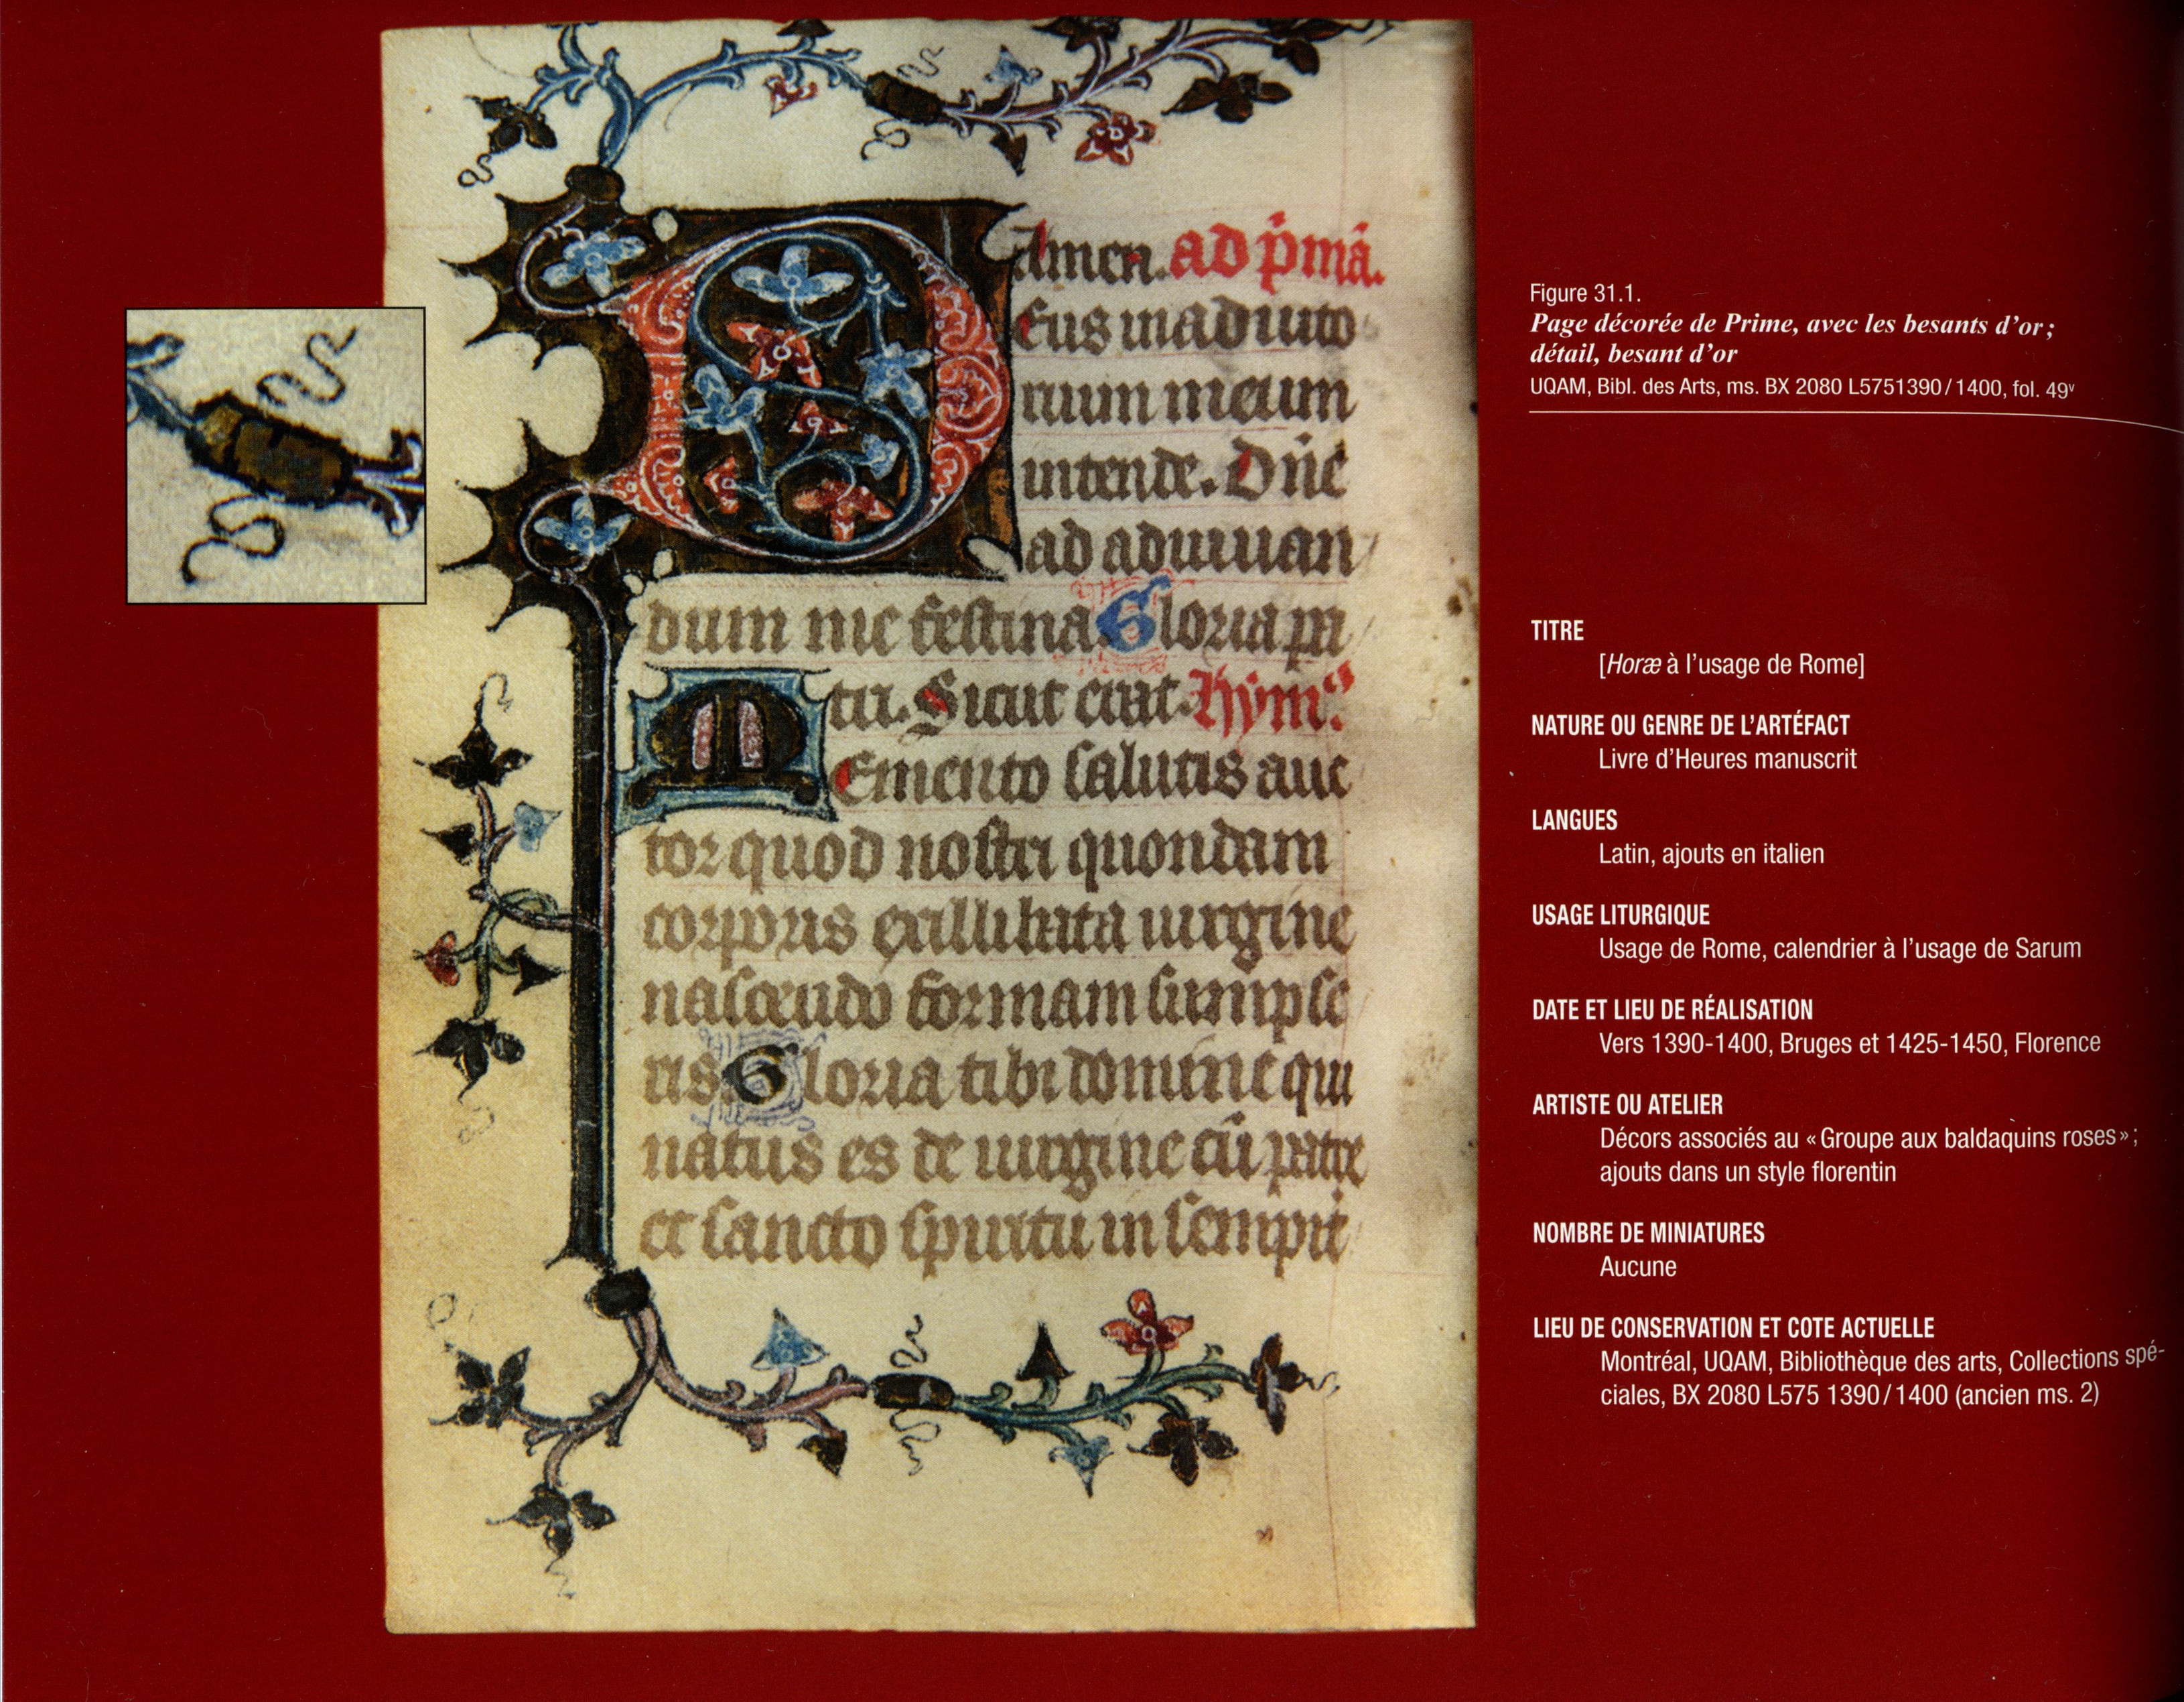 Amen. ad p̄mā.
eus in adiuto
rium meum
intende. Dñe
ad adiuuan
dum me festina Gloria pa
tri. Sicut erat. Hym⁹
Emento salutis auc
tor quod nostri quondam
corporis ex illibata uirgine
nascendo formam sumpse
ris Gloria tibi domine qui
natus es de uirgine cū patre
et sancto spiritu in sempit
Figure 31.1.
Page décorée de Prime, avec les besants d’or ;
détail, besant d’or
UQAM, Bibl. des Arts, ms. BX 2080 L5751390/1400, fol. 49v
TITRE
[Horæ à l’usage de Rome]
NATURE OU GENRE DE L’ARTÉFACT
Livre d’Heures manuscrit
LANGUES
Latin, ajouts en italien
USAGE LITURGIQUE
Usage de Rome, calendrier à l’usage de Sarum
DATE ET LIEU DE RÉALISATION
Vers 1390-1400, Bruges et 1425-1450, Florence
ARTISTE OU ATELIER
Décors associés au « Groupe aux baldaquins roses » ;
ajouts dans un style florentin
NOMBRE DE MINIATURES
Aucune
LIEU DE CONSERVATION ET COTE ACTUELLE
Montréal, UQAM, Bibliothèque des arts, Collections spé-
ciales, BX 2080 L575 1390/1400 (ancien ms. 2)